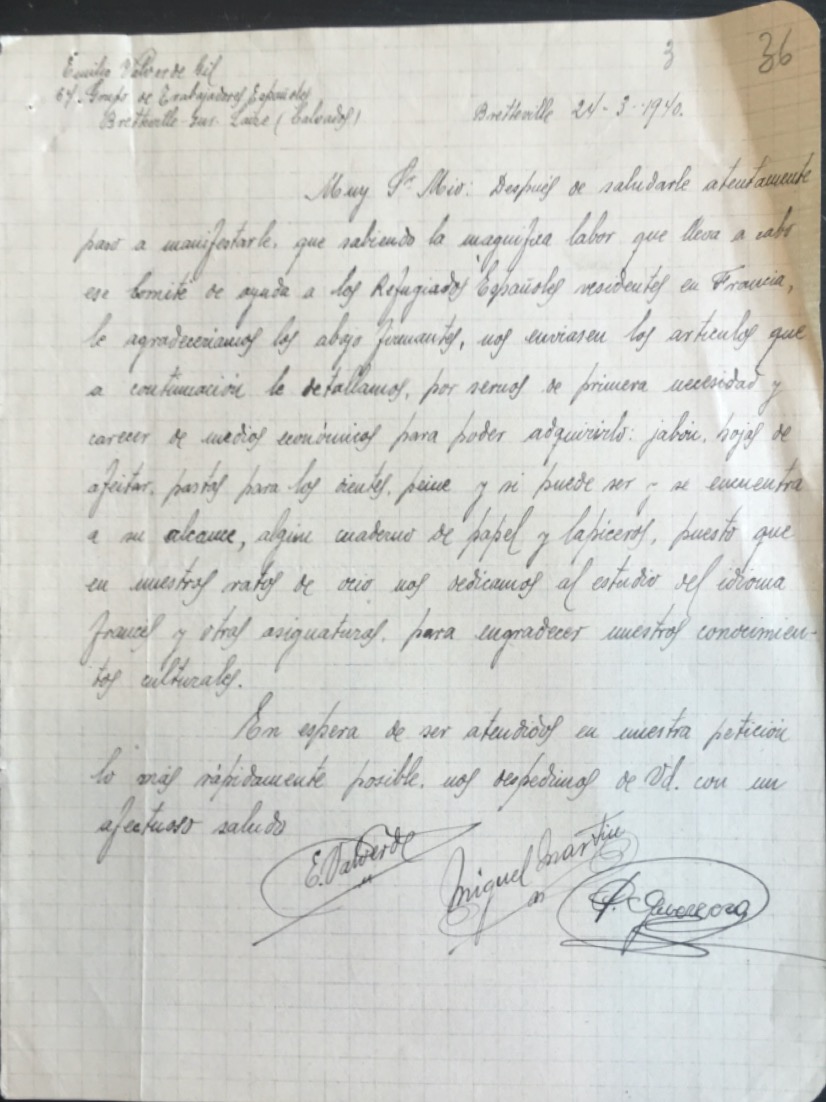 3 36
Emilio Valverde Gil
67 Grupo de Trabajadores Españoles
Bretteville-sur-Laize (Calvados)
Bretteville 24-3-1940.
Muy Sr Mio: Después de saludarle atentamente
paso a manifestarle, que sabiendo la magnifica labor que lleva a cabo
ese Comité de ayuda a los Refugiados Españoles residentes en Francia,
le agradeceriamos los abajo firmantes, nos enviasen los articulos que
a continuación le detallamos, por sernos de primera necesidad y
carecer de medios económicos para poder adquirirlo: jabón, hojas de
afeitar, pastas para los dientes, peine y si puede ser y se encuentra
a su alcance, algún cuaderno de papel y lapiceros, puesto que
en nuestros ratos de ocio nos dedicamos al estudio del idioma
francés y otras asignaturas, para engradecer nuestros conocimien-
tos culturales.
En espera de ser atendidos en nuestra petición
lo más rápidamente posible, nos despedimos de Vd. con un
afectuoso saludo
E. Valverde Miguel Martin